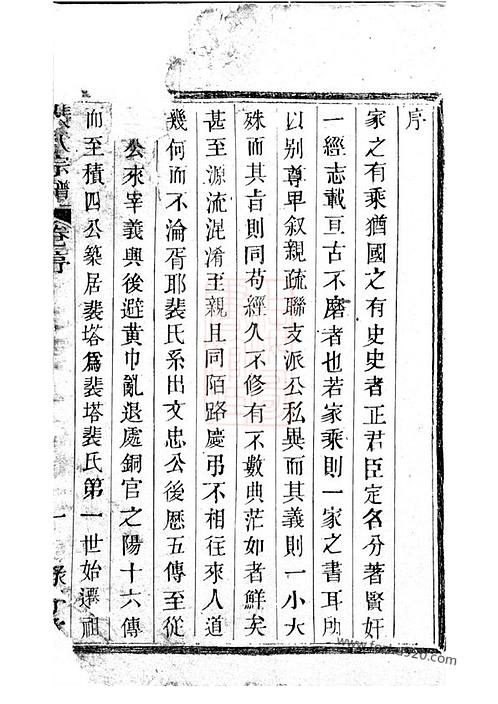 序
家之有乘猶國之有史史者正君臣定名分著賢奸
一經志載亘古不磨者也若家乘則一家之書耳所
以别尊卑叙親疏聯支派公私異而其義則一小大
殊而其㫖則同苟經久不修有不數典茫如者鮮矣
甚至源流混淆至親且同陌路慶弔不相往來人道
幾何而不淪胥耶裴氏系出文忠公後歷五傳至從
公來宰義興後避黄巾亂退處銅官之陽十六傳
而至積四公築居裴塔爲裴塔裴氏第一世始遷祖
裴氏宗譜 卷一序 一
www.fortune920.com